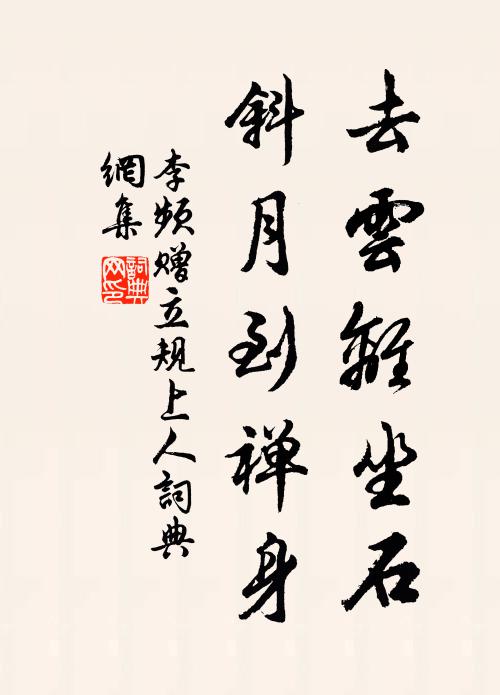 去雲離坐石
斜月到禅身
李频赠立規上人詞典
網集
詞典
网印